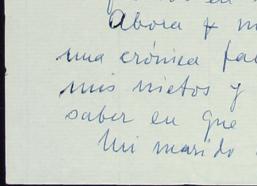 Ahora
una crónica
mis nietos y
saber en que
Mi marido